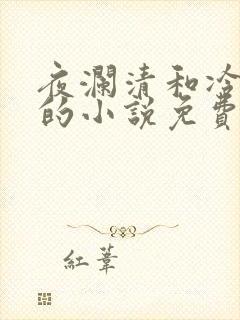 夜瀾清和冷
的小說免費
紅葦